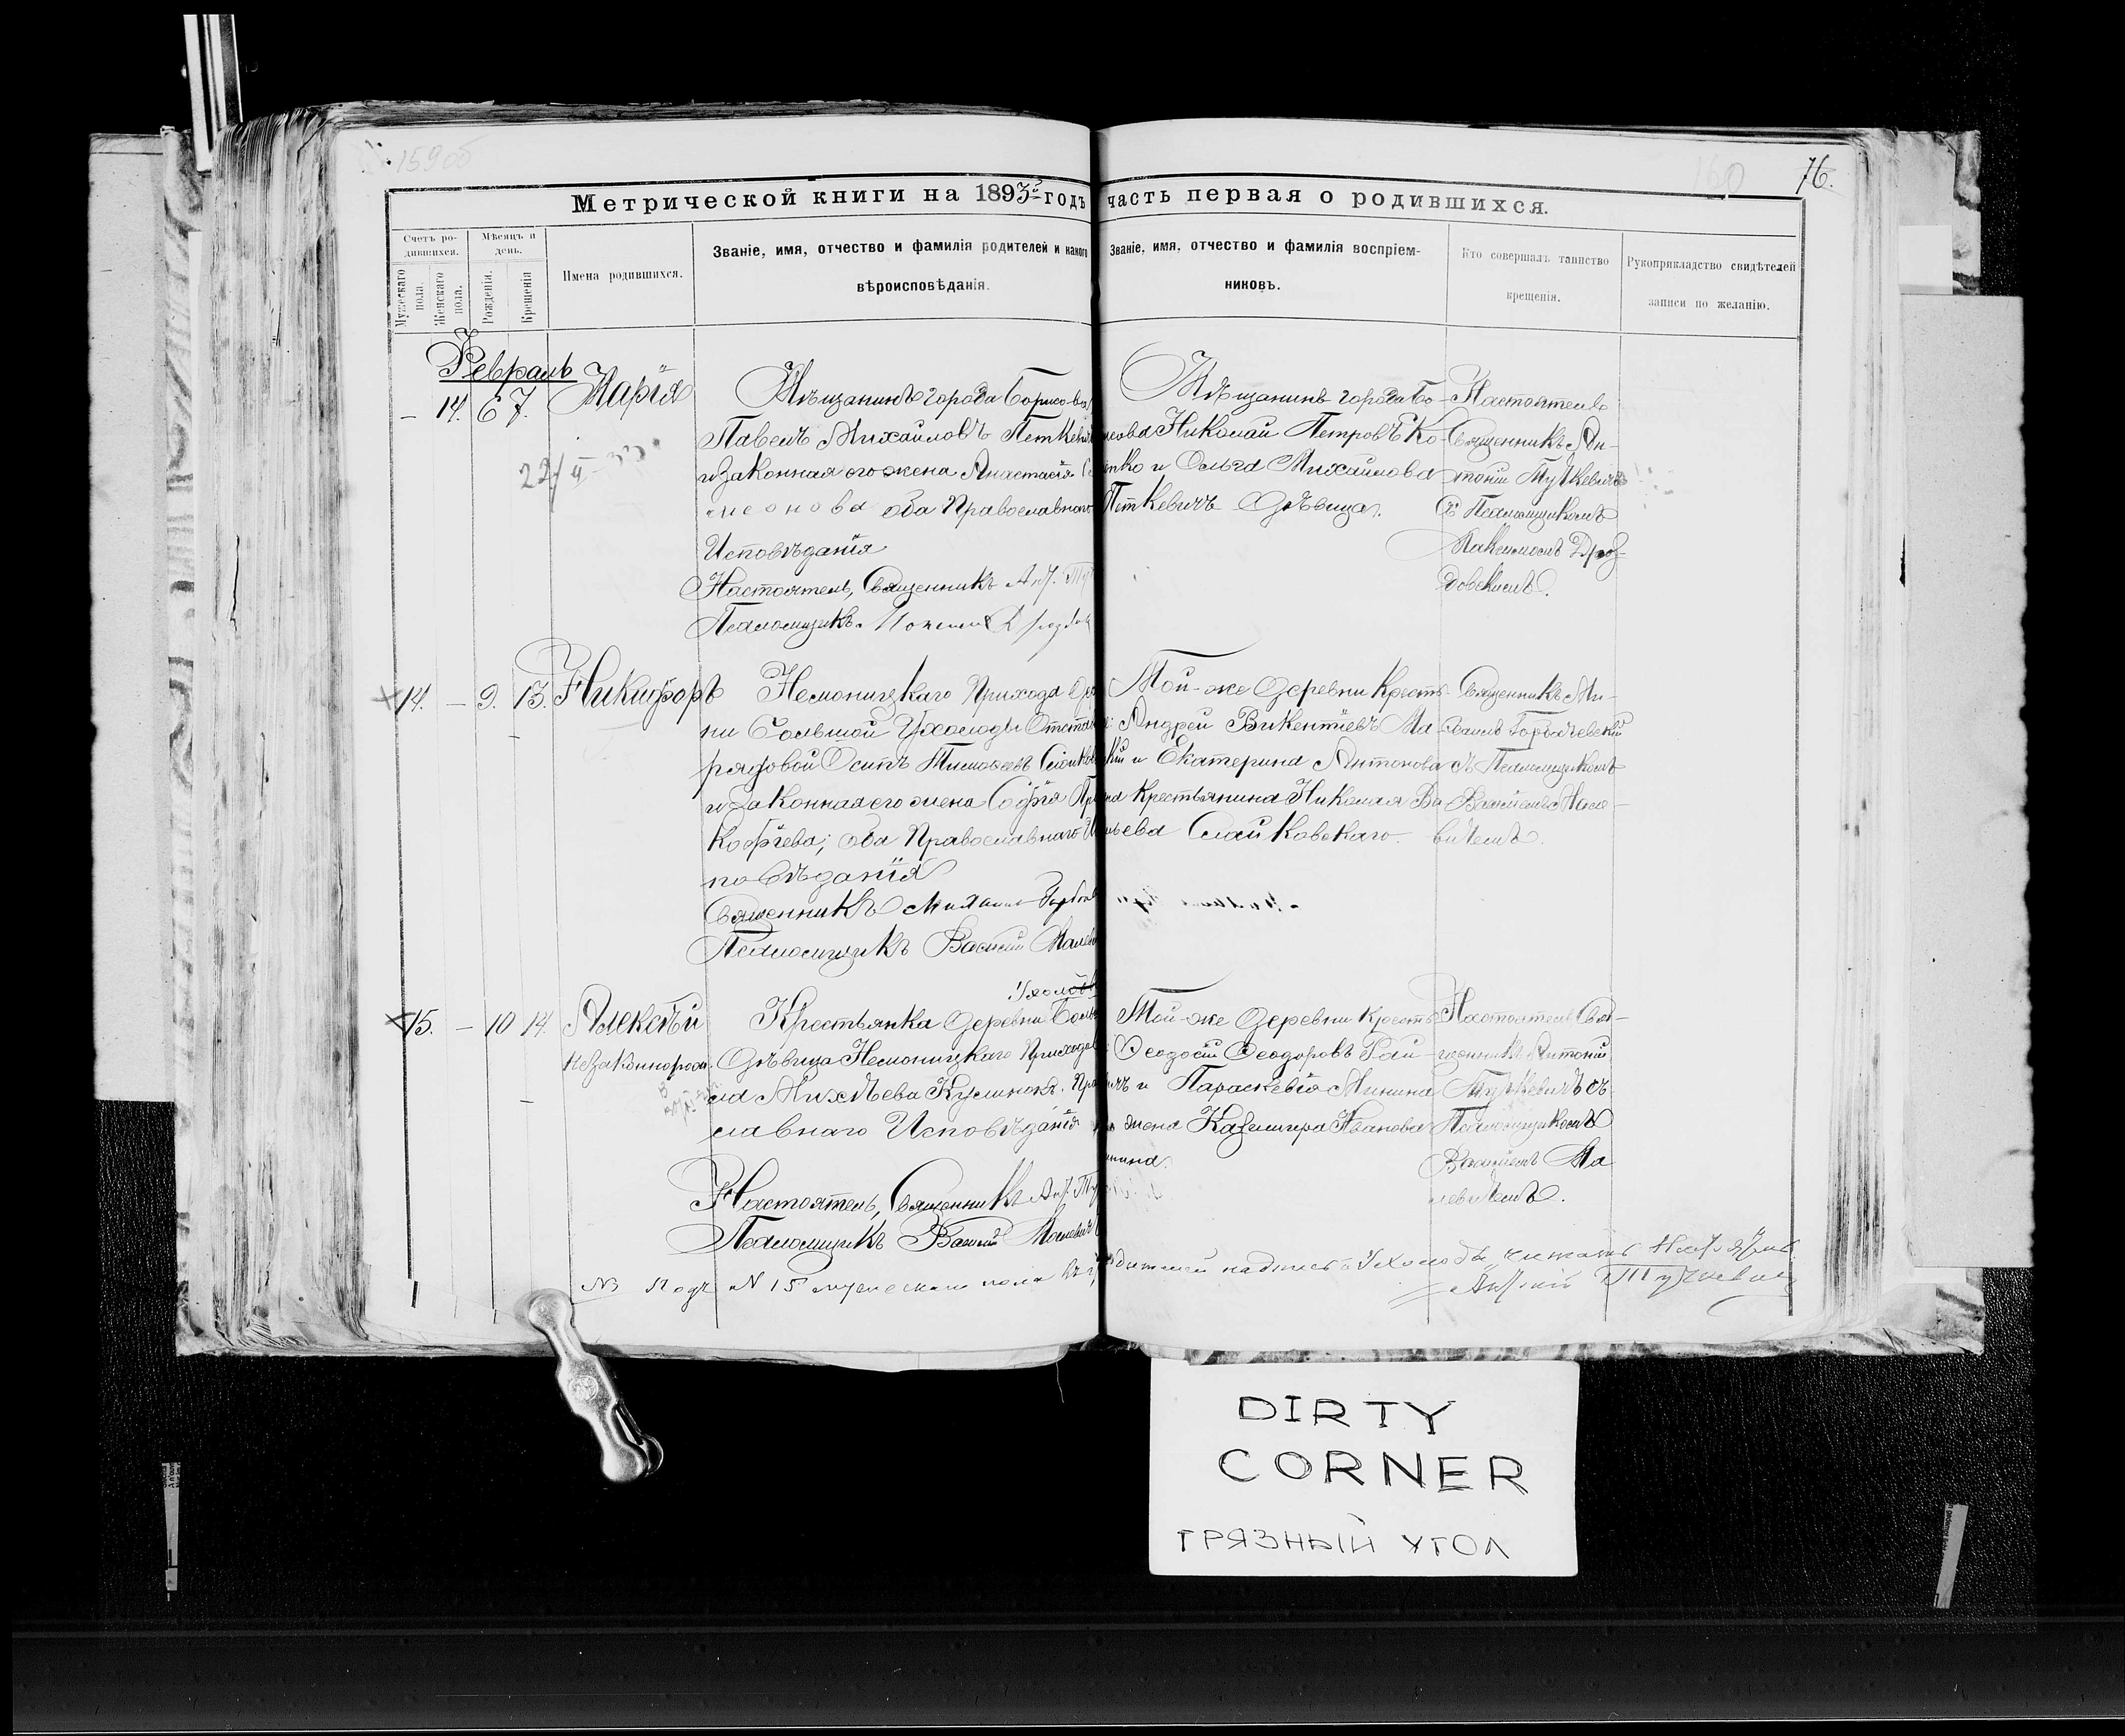 159об
160
76.
Метрической книги на 1893й годъ часть первая о родившихся.
Счетъ ро-
дившихся.
Мѣсяцъ и
день.
Мужескаго
пола.
Женскаго
пола.
Рожденія.
Крещенія
Имена родившихся.
Званіе, имя, отчество и фамилія родителей и какого
вѣроисповѣданія.
Званіе, имя, отчество и фамилія воспріем-
никовъ.
Кто совершалъ таинство
крещенія.
Рукоприкладство свидѣтелей
записи по желанію.
Февраль
— 14. 6 7. Марія
22/II
Мѣщанинъ города Борисова
Павелъ Михайловъ Петкевичъ
и законная его жена Анастасія Се
меонова оба Православнаго
Исповѣданія
Настоятель, Священникъ Ант.
Псаломщикъ
Мѣщанинъ города Бо-
Николай Петровъ Ко-
енко и Ольга Михайлова
Петкевичъ Дѣвица.
Настоятель
Священникъ Ан-
тоній Туткевичъ
съ Псаломщикомъ
Максимомъ Дроз-
довскимъ.
14. — 9. 13. Никифоръ
Немоницкаго Прихода Дер
ни Большой Ухолоды Отстав
рядовой Осипъ Тимофеевъ
и законная его жена Софія Пр
кофіева; оба Православнаго И
повѣданія
Священникъ Михаилъ
Псаломщикъ Василій Малеви
Той-же деревни Крестъ-
Андрей Викентіевъ Ма-
кій и Екатерина Антонова
на Крестьянина Николая Ва
льева Слайковскаго.
Священникъ Ми-
хаилъ Горбачевскій
съ Псаломщикомъ
Василіемъ Мале-
вичемъ.
15. — 10 14. Алексѣй
незаконнорож.
Ухолод
Крестьянка деревни Боль
Дѣвица Немоницкаго Прихода
ла Михѣева Кулинокъ. Пра
славнаго Исповѣданія
Настоятель, Священникъ Ант. Ту
Псаломщикъ Василій Малевичъ
Той-же деревни Крестъ
Ѳеодосій Ѳеодоровъ Рай-
чъ и Параскевія Минина
жена Казимира Иванова
нина.
Настоятель Свя-
щенникъ Антоній
Туткевичъ съ
Псаломщикомъ
Василіемъ Ма
левичемъ.
NB Подъ N 15 мужескаго пола въ г
надпись "Ухолоды" читать
Антоній Туткевичъ
DIRTY
CORNER
ГРЯЗНЫЙ УГОЛ